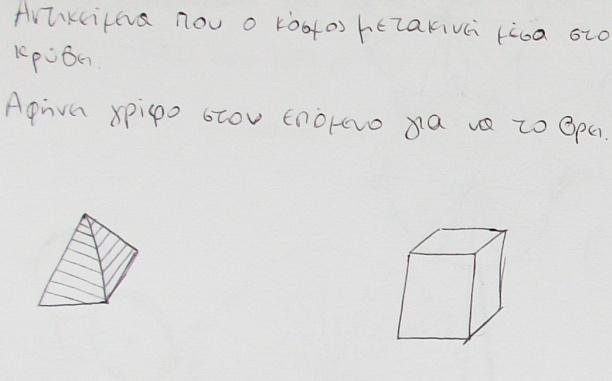 Αντικείμενα που ο κόσμος μετακινεί μέσα στο
κρύβει.
Αφήνει γρίφο στον επόμενο για να το βρει.